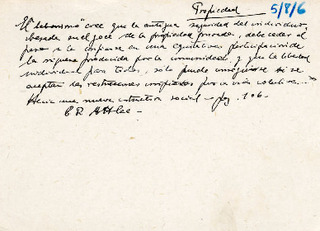 Propiedad
5/8/6
El laborismo "cree que la antigua seguridad del individuo,
basada en el goce de la propiedad privada, debe ceder el
paso a la en una equitativa participación de
la riqueza producida por la comunidad, y que la libertad
individual para todos, sólo puede conseguirse si se
aceptan las restricciones por la vida colectiva...."
Hacia una nueva estructura social - pág. 106.
C. R. Attlee